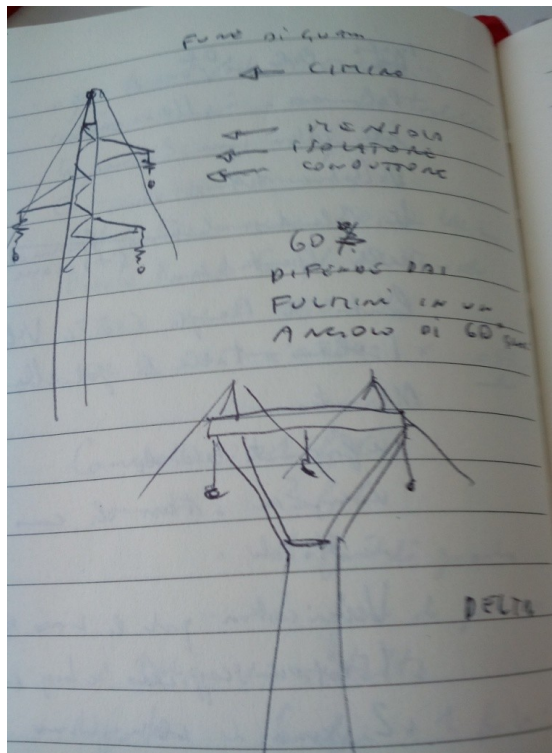 FUNE DI GUARDIA
CIMINO
MENSOLA
ISOLATORE
CONDUTTORE
60
DIFENDE DAI
FULMINI IN UN
ANGOLO DI 60°
DELTA